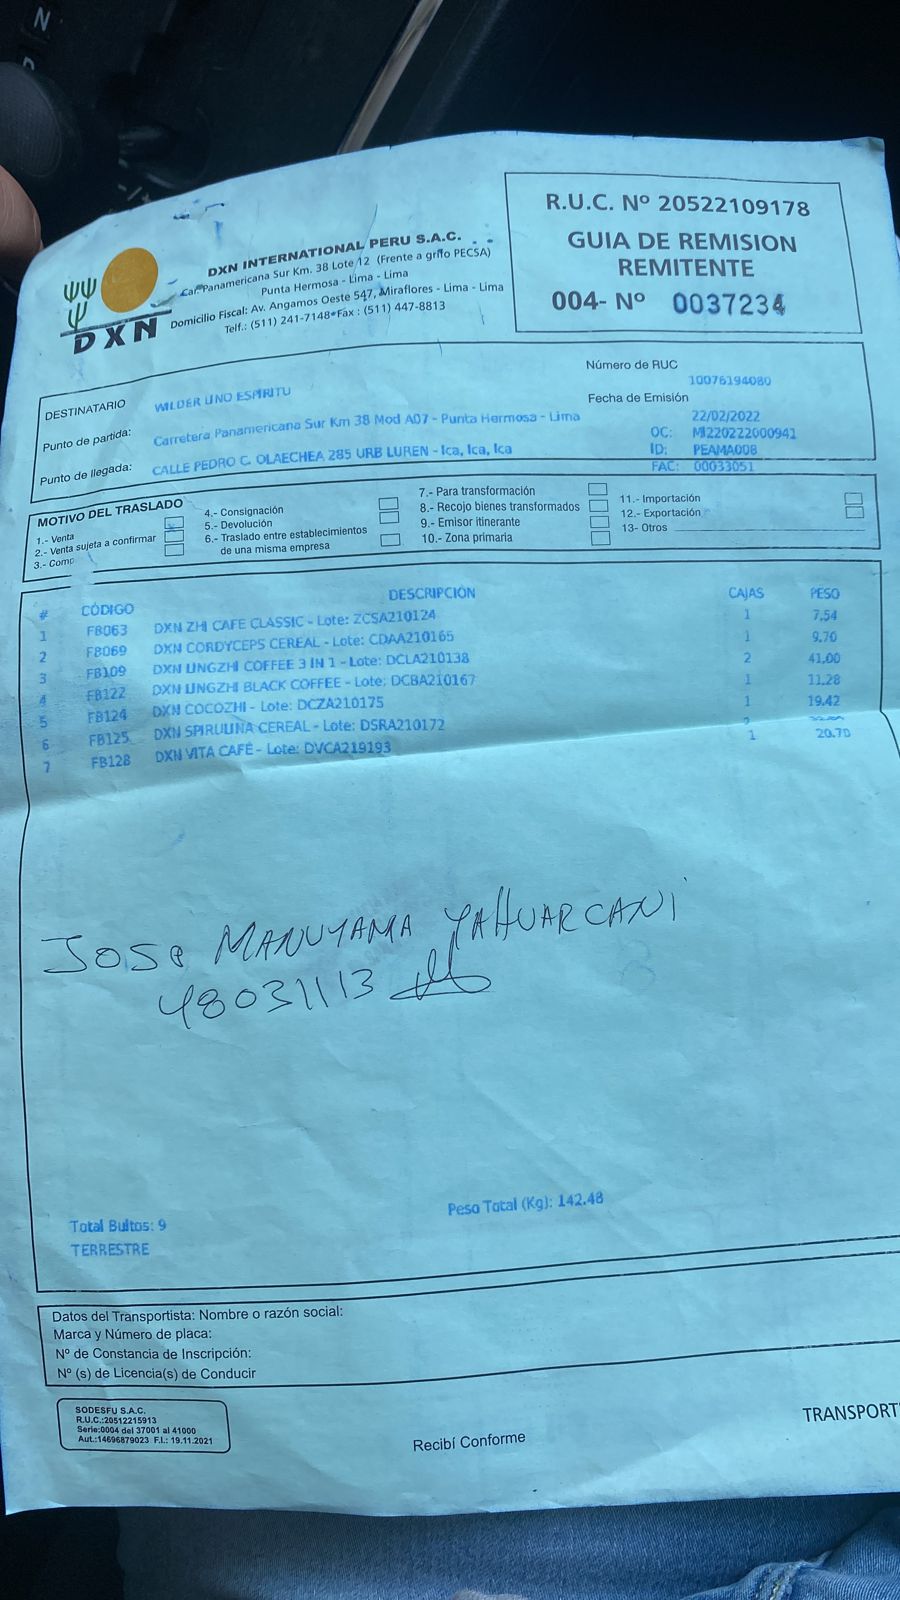 N
DXN
DXN INTERNATIONAL PERU S.A.C.
Car. Panamericana Sur Km. 38 Lote 12 (Frente a grifo PECSA)
Punta Hermosa - Lima - Lima
Domicilio Fiscal: Av. Angamos Oeste 547, Miraflores - Lima - Lima
Telf.: (511) 241-7148 Fax : (511) 447-8813
R.U.C. Nº 20522109178
GUIA DE REMISION
REMITENTE
004- Nº 0037234
DESTINATARIO WILDER LINO ESPIRITU
Número de RUC
10076194080
Punto de partida: Carretera Panamericana Sur Km 38 Mod A07 - Punta Hermosa - Lima
Fecha de Emisión
22/02/2022
Punto de llegada: CALLE PEDRO C. OLAECHEA 285 URB LUREN - Ica, Ica, Ica
OC: MI220222000941
ID: PEAMA008
FAC: 00033051
MOTIVO DEL TRASLADO
1.- Venta
2.- Venta sujeta a confirmar
3.- Comp
4.- Consignación
5.- Devolución
6.- Traslado entre establecimientos
de una misma empresa
7.- Para transformación
8.- Recojo bienes transformados
9.- Emisor itinerante
10.- Zona primaria
11.- Importación
12.- Exportación
13- Otros
# CÓDIGO DESCRIPCIÓN CAJAS PESO
1 FB063 DXN ZHI CAFE CLASSIC - Lote: ZCSA210124 1 7,54
2 FB069 DXN CORDYCEPS CEREAL - Lote: CDAA210165 1 9,70
3 FB109 DXN LINGZHI COFFEE 3 IN 1 - Lote: DCLA210138 2 41,00
4 FB122 DXN LINGZHI BLACK COFFEE - Lote: DCBA210167 1 11,28
5 FB124 DXN COCOZHI - Lote: DCZA210175 1 19.42
6 FB125 DXN SPIRULINA CEREAL - Lote: DSRA210172 2
7 FB128 DXN VITA CAFÉ - Lote: DVCA219193 1 20.70
JOSE MANUYAMA YAHUARCANI
48031113
Peso Total (Kg): 142.48
Total Bultos: 9
TERRESTRE
Datos del Transportista: Nombre o razón social:
Marca y Número de placa:
Nº de Constancia de Inscripción:
Nº (s) de Licencia(s) de Conducir
SODESFU S.A.C.
R.U.C.:20512215913
Serie:0004 del 37001 al 41000
Aut.:14696879023 F.I.: 19.11.2021
Recibí Conforme
TRANSPORT